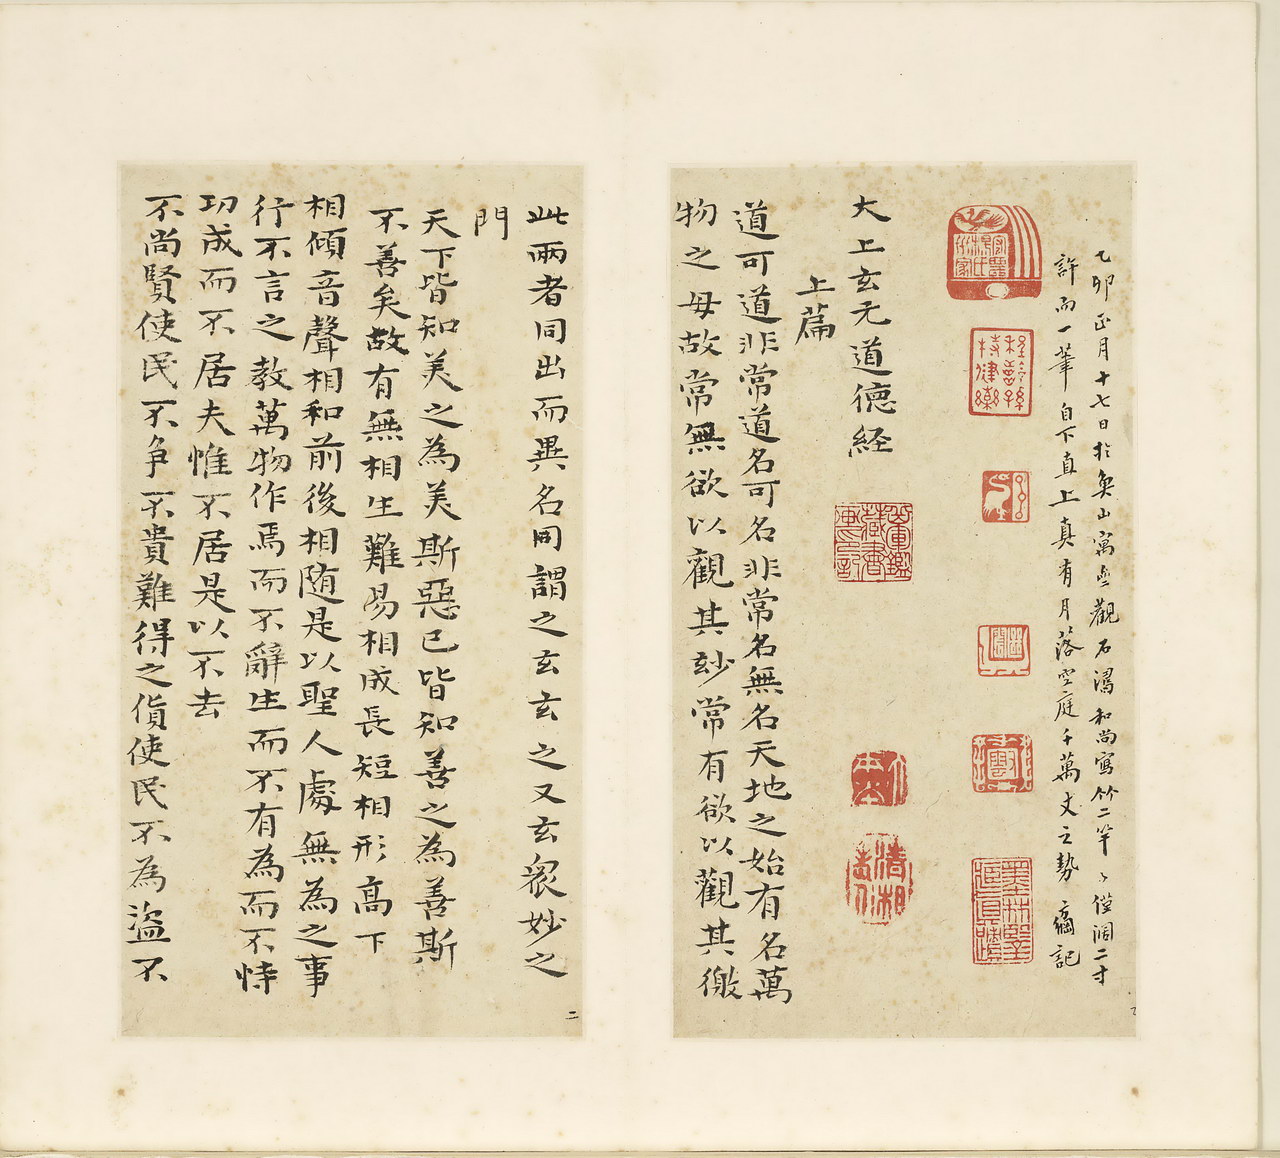 乙卯正月十七日於奐山寓無觀石濤和尚寫竹二竿〻僅濶二寸
許而一筆自下直上真有月落空庭千萬丈之勢 記
大上玄元道德経
上篇
道可道非常道名可名非常名無名天地之始有名萬
物之母故常無欲以觀其玅常有欲以觀其徼
此兩者同出而異名同謂之玄玄之又玄衆妙之
門
天下皆知美之為美斯惡已皆知善之為善斯
不善矣故有無相生難易相成長短相形高下
相傾音聲相和前後相随是以聖人處無為之事
行不言之教萬物作焉而不辭生而不有為而不恃
功成而不居夫惟不居是以不去
不尚賢使民不争不貴難得之貨使民不為盜不
二